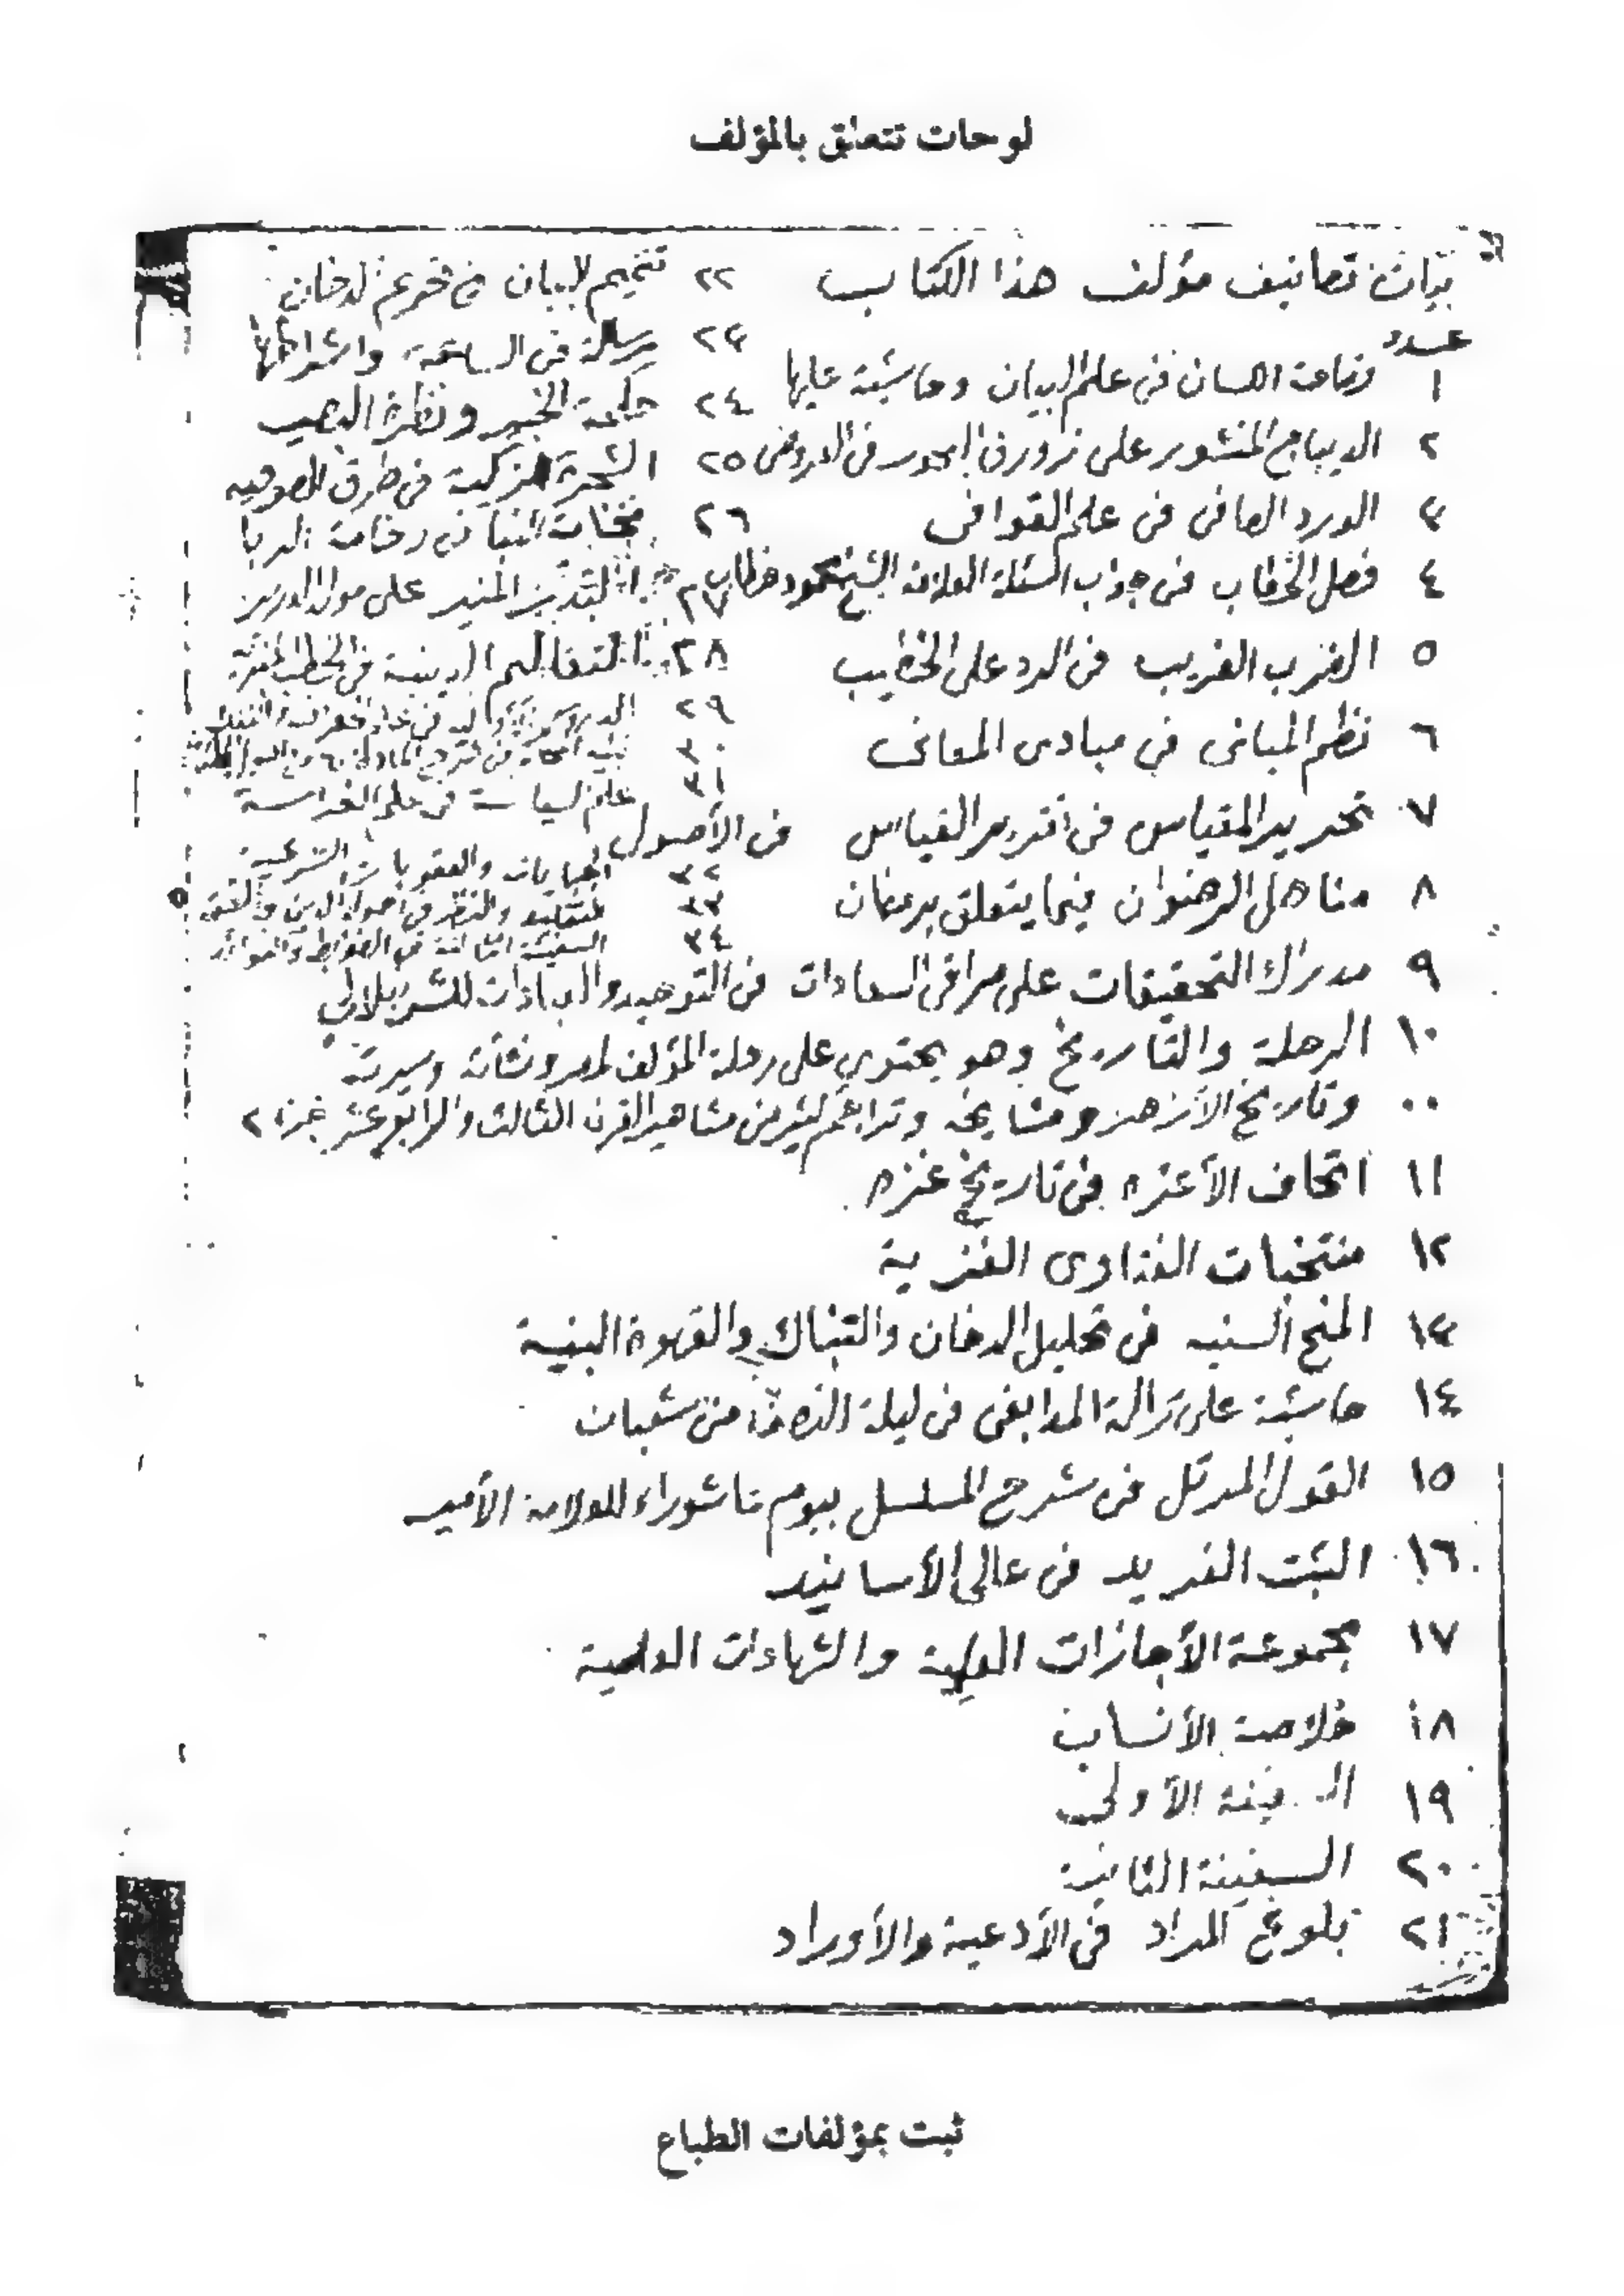 لوحات تتعلق بالمؤلف
بيان تصانيف مؤلف هذا الكتاب
عدد
١ في علم البيان وحاشية عليها
٢ الديباج المنشور على زورق البحور في العروض
٣ الورد الصافى فى علم القوافى
٤ فصل الخطاب فى جواب اسئلة العلامة الشيخ محمود خطاب
٥ الضرب الغريب فى الرد على الخطيب
٦ نظم المبانى في مبادى المعانى
٧ تحرير المقياس فى القياس فى الأصول
٨ مناهل الرضوان فيما يتعلق برمضان
٩ مدارك التحقيقات على مراقى السعادات فى التوحيد والعبادات للشرنبلالي
١٠ الرحلة والتاريخ وهو يحتوي على رحلة المؤلف لمصر ونشأته وسيرته
٠٠ وتاريخ الأزهر ومشايخه وتراجم كثير من مشاهير القرن الثالث والرابع عشر جزء ٢
١١ اتحاف الأعزه في تاريخ غزه
١٢ منتخبات الفتاوى الغزية
١٣ المنح السنيه فى تحليل الدخان والتنباك والقهوة البنية
١٤ حاشية على المدابغى فى ليلة النصف من شعبان
١٥ القول المرتل فى شرح المسلسل بيوم عاشوراء للعلامة الأمير
١٦ الثبت الفريد فى عالى الأسانيد
١٧ مجموعة الأجازات العلية والشهادات العلمية
١٨ خلاصة الأنساب
١٩ السفينة الأولى
٢٠ السفينة الثانية
٢١ بلوغ المراد فى الأدعية والأوراد
٢٢ تتميم البيان في تحريم الدخان
٢٣ رسالة فى الساعة واشراطها
٢٤ حكمة الخبير ونظرة البصير
٢٥ الشجرة الزكية فى طرق الصوفيه
٢٦ الربا
٢٧ المنير على مولد الدردير
٢٨ التعاليم الدينية فى الخطب المنبرية
٢٩
٣٠
٣١ علم السياسة فى علم الفراسة
٣٢ الجنايات والعقوبات الشرعية
٣٣ والنظر فى اصول الدين والفقه
٣٤ السفينة الثالثة فى الضوابط والفوائد
ثبت بمؤلفات الطباع